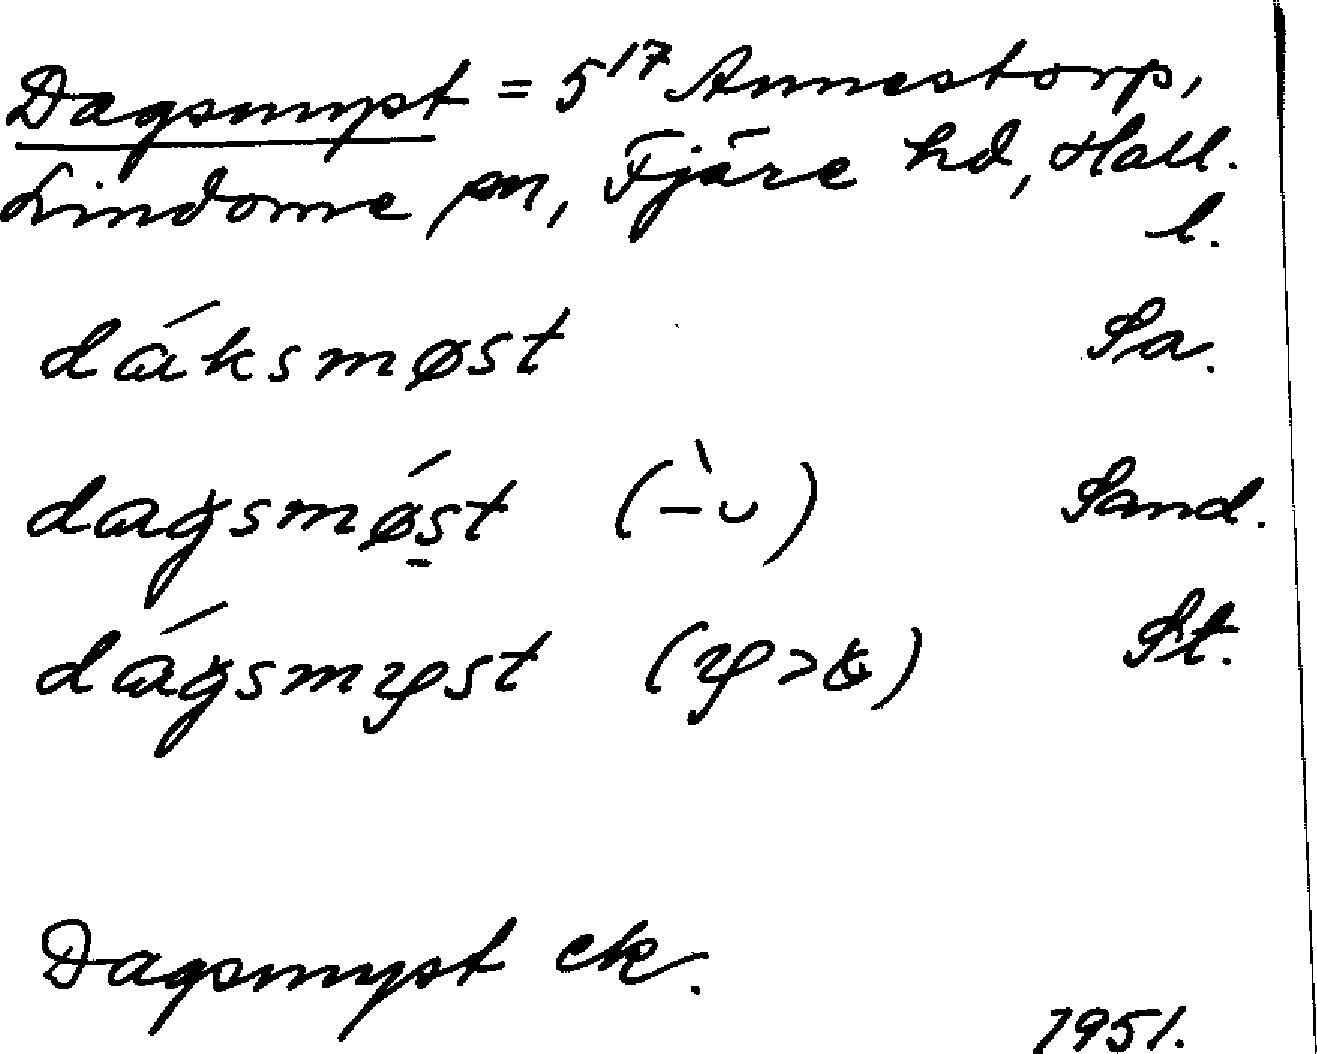 Dagsmyst = 5¹⁷ Annestorp,
Lindome sn, Fjäre hd, Hall.
l.
dáksmøst Sa.
dagsmǿst (-̀ᴗ) Sand.
dágsmyst St.
Dagsmyst ek.
1951.